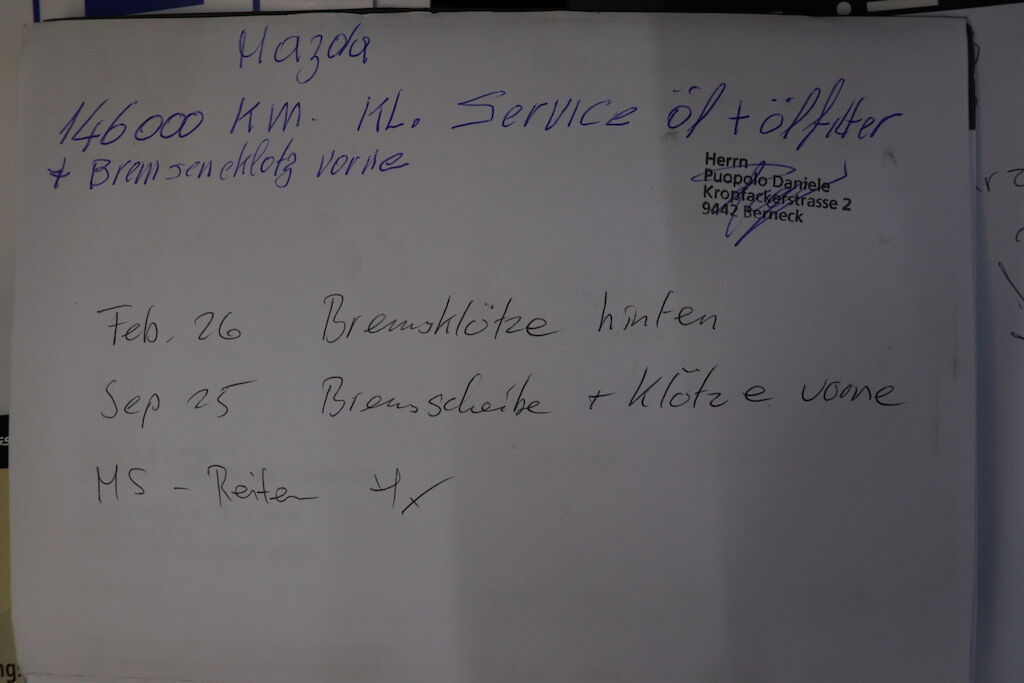 Mazda
146000 KM. KL. Service öl + ölfilter
+ Bremseneklotz vorne
Herrn
Puopolo Daniele
Kropfackerstrasse 2
9442 Berneck
Feb. 26 Bremsklötze hinten
Sep 25 Bremsscheibe + Klötze vorne
MS - Reifen 4x